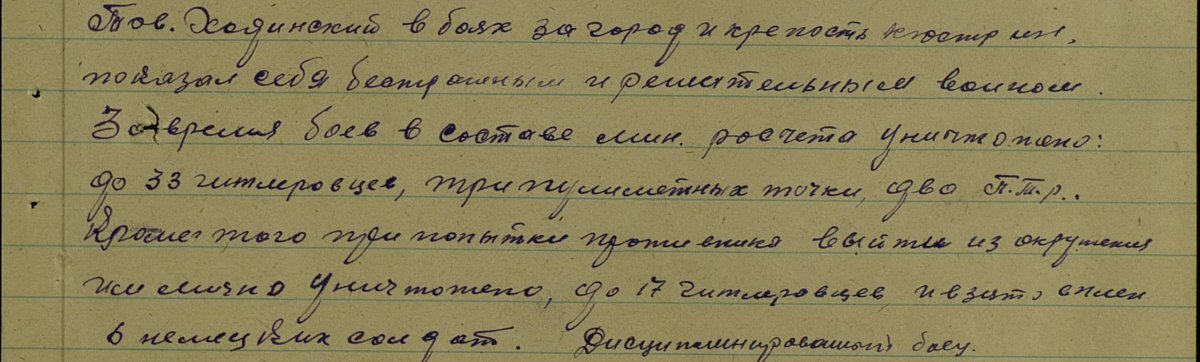 Тов. Ходинский в боях за город и крепость Кюстрин,
показал себя бесстрашным и решительным воином.
За время боев в составе мин. расчета уничтожено:
до 33 гитлеровцев, три пулиметных точки, два П.т.р..
Кроме того при попытки противника выйти из окружения
им лично уничтожено, до 17 гитлеровцев, и взято в плен
6 немецких солдат. Дисциплинированый боец.